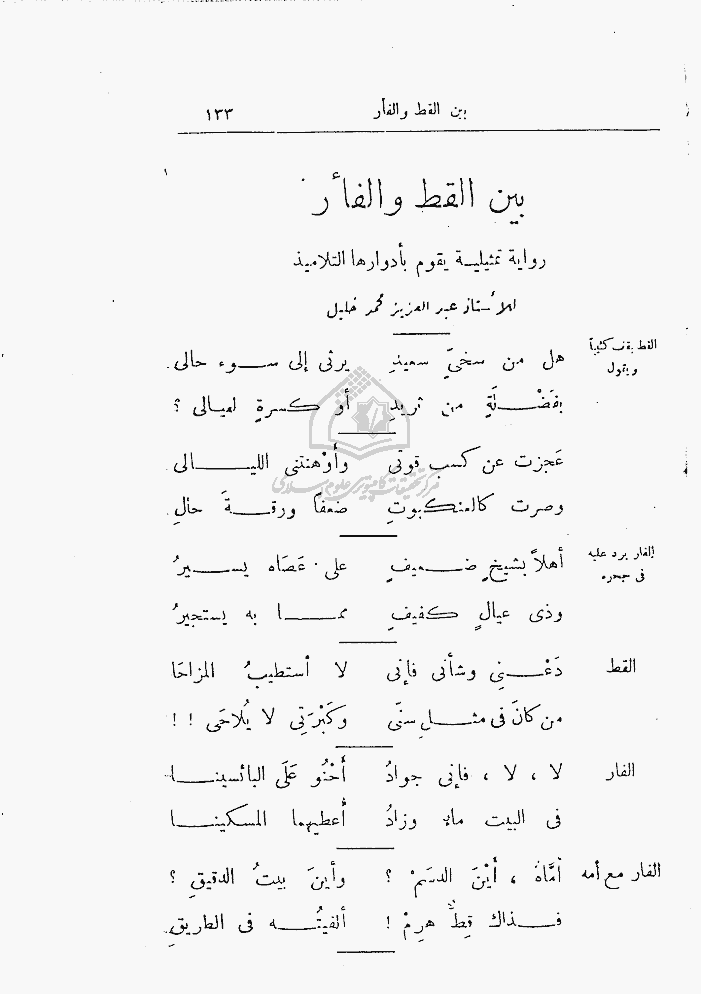 بين القط والفأر ١٣٣
بين القط والفأر
رواية تمثيلية يقوم بأدوارها التلاميذ
للأستاذ عبد العزيز محمد خليل
القط يقف كئيباً ويقول
هل من سخىٍّ سعيدِ يرثى إلى ســوء حالى
بفَضْــلةٍ من ثريدِ أو كسرةٍ لعيالى ؟
عَجزت عن كسب قوتى وأوْهنتنى الليــالى
وصرت كالعنكبوتِ ضعفاً ورقــةَ حالِ
الفار يرد عليه فى جحره
أهلاً بشيخٍ ضــعيفٍ على عَصَاه يســيرُ
وذى عيالٍ كفيفِ ممــا به يستجيرُ
القط
دَعْــنى وشأنى فإنى لا أستطيبُ المزاحَا
من كانَ فى مثــلِ سنّى وكَبْرَتِى لا يُلاحَى ! !
الفار
لا ، لا ، فإنى جوادُ أَحْنُو عَلَى البائسينــا
فى البيت ماء وزادُ أُعطيهما المسكينــا
الفار مع أمه
أمَّاهُ ، أيْنَ الدسَمْ ؟ وأينَ بيتُ الدقيقِ ؟
فــذاك قِطٌّ هرِمْ ! ألفيتُــه فى الطريقِ
مركز تحقيقات كامپيوترى علوم اسلامى